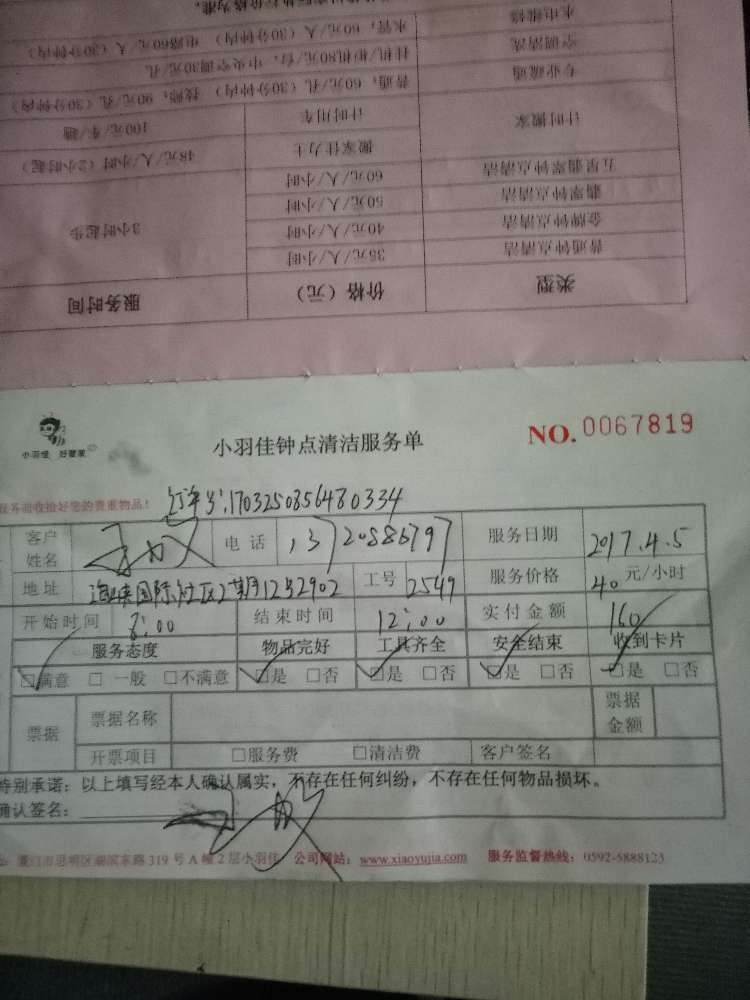 水电维修 水管：60元/人（30分钟内） 电路60元/人（30分钟内）
空调清洗 挂机/柜机80元/台，中央空调30元/孔
专业疏通 普通：60元/孔（30分钟内） 技师：90元/孔（30分钟内）
计时搬家 计时用车 100元/车/趟
搬家佳力士 48元/人/小时（2小时起）
五星翡翠钟点清洁 60元/人/小时
翡翠钟点清洁 50元/人/小时
金牌钟点清洁 40元/人/小时 3小时起步
普通钟点清洁 35元/人/小时
类型 价格（元） 服务时间
小羽佳 好管家
小羽佳钟点清洁服务单 NO.0067819
服务前收拾好您的贵重物品！ 订单号:1703250856480334
客户姓名 电话 13720886797 服务日期 2017.4.5
地址 海峡国际社区2期12号2902 工号 2549 服务价格 40 元/小时
开始时间 8:00 结束时间 12:00 实付金额 160
服务态度 物品完好 工具齐全 安全结束 收到卡片
☑满意 □ 一般 □不满意 ☑是 □否 ☑是 □否 ☑是 □否 ☑是 □否
票据 票据名称 票据金额
开票项目 □服务费 □清洁费 客户签名
特别承诺：以上填写经本人确认属实，不存在任何纠纷，不存在任何物品损坏。
确认签名：
厦门市思明区湖滨东路319号A幢2层小羽佳 公司网站：www.xiaoyujia.com 服务监督热线：0592-5888123